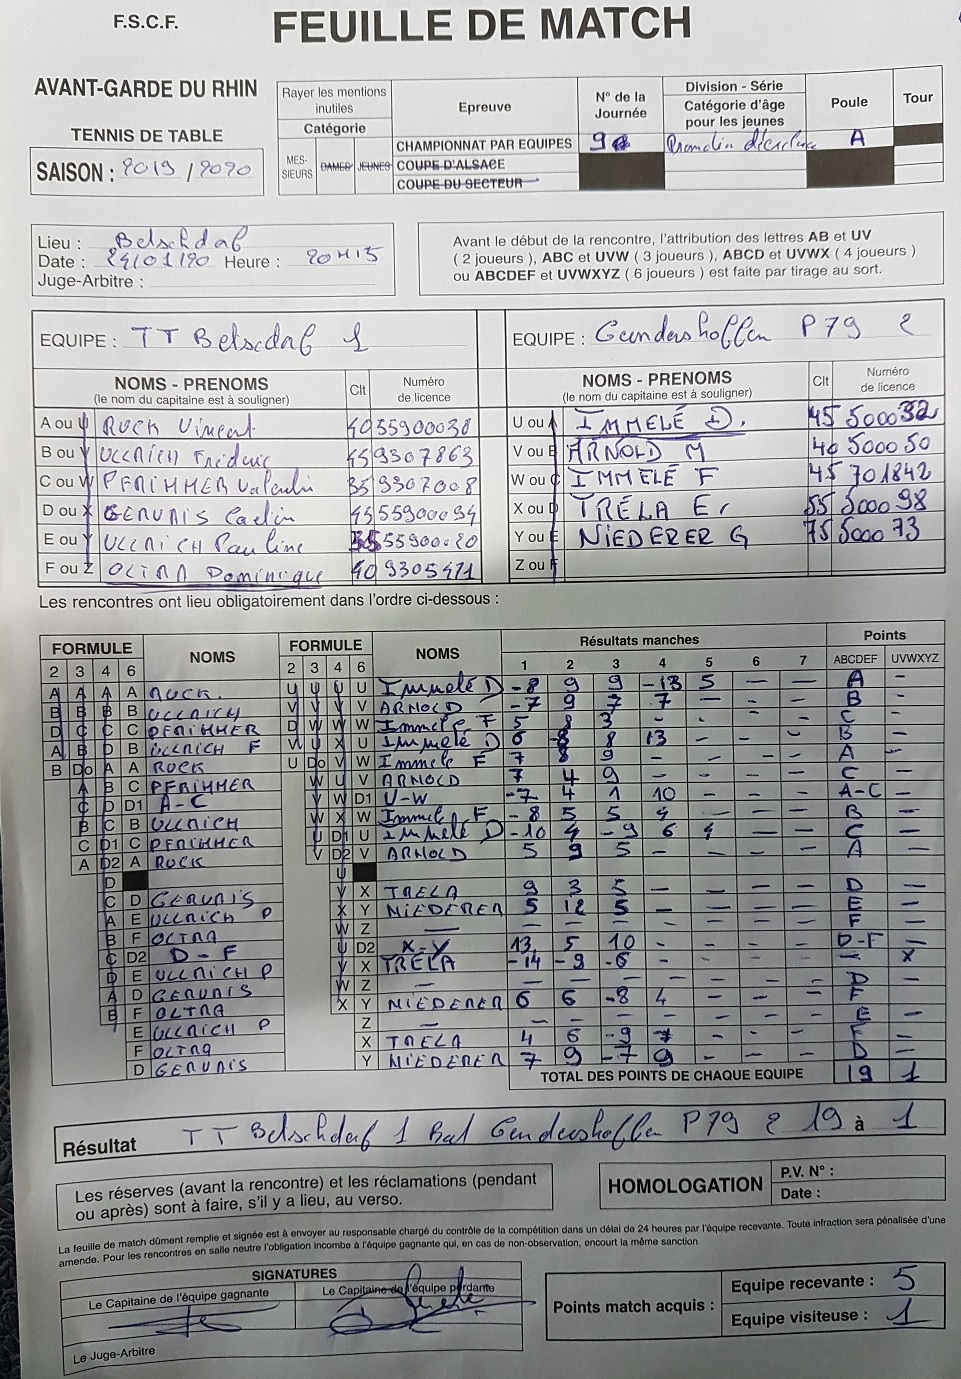 F.S.C.F.
FEUILLE DE MATCH
AVANT-GARDE DU RHIN
TENNIS DE TABLE
SAISON : 2019 / 2020
Rayer les mentions inutiles
Catégorie
MES-SIEURS DAMES JEUNES
Epreuve
N° de la Journée
Division - Série
Catégorie d'âge pour les jeunes
Poule
Tour
CHAMPIONNAT PAR EQUIPES 9 A
COUPE D'ALSACE
COUPE DU SECTEUR
Lieu : Betschdorf
Date : 24/01/20 Heure : 20H15
Juge-Arbitre :
Avant le début de la rencontre, l'attribution des lettres AB et UV
( 2 joueurs ), ABC et UVW ( 3 joueurs ), ABCD et UVWX ( 4 joueurs )
ou ABCDEF et UVWXYZ ( 6 joueurs ) est faite par tirage au sort.
EQUIPE : TT Betschdorf 1
EQUIPE : Gundershoffen P79 2
NOMS - PRENOMS (le nom du capitaine est à souligner) Clt Numéro de licence
NOMS - PRENOMS (le nom du capitaine est à souligner) Clt Numéro de licence
A ou U RUCK Vincent 40 55900038
U ou A IMMELÉ D. 45 500032
B ou V ULLRICH Frédéric 45 9307863
V ou B ARNOLD M 40 500050
C ou W PFRIMMER Valentin 35 9307008
W ou C IMMELÉ F 45 701842
D ou X GERVAIS 45 55900094
X ou D TRÉLA Er 55 500098
E ou Y ULLRICH Pauline 55900020
Y ou E NIEDERER G 75 500073
F ou Z OLTRA Dominique 40 9305471
Z ou F
Les rencontres ont lieu obligatoirement dans l'ordre ci-dessous :
FORMULE NOMS FORMULE NOMS Résultats manches Points
2 3 4 6 2 3 4 6 1 2 3 4 5 6 7 ABCDEF UVWXYZ
A A A A RUCK U U U U Immelé D -8 9 9 -13 5 — — A -
B B B B ULLRICH V V V V ARNOLD -7 9 7 7 - - - B -
D C C C PFRIMMER D W W W Immele F 5 8 3 - - - - C -
A B D B ULLRICH F V U X U Immelé D 6 -8 8 13 - - - B -
B Do A A RUCK U Do V W Immele F 7 8 9 - - - - A -
A B C PFRIMMER W U V ARNOLD 7 4 9 - - - - C -
C D D1 A-C V W D1 U-W -7 4 1 10 - - - A-C -
B C B ULLRICH W X W Immele F -8 5 5 4 - - - B -
C D1 C PFRIMMER U D1 U Immelé D -10 4 -9 6 4 - - C -
A D2 A RUCK V D2 V ARNOLD 5 9 5 - - - - A -
D U
C D GERVAIS V X TRELA 9 3 5 - - - - D -
A E ULLRICH P X Y NIEDERER 5 12 5 - - - - E -
B F OLTRA W Z — - - - - - - - F -
C D2 D-F U D2 X-Y 13 5 10 - - - - D-F -
D E ULLRICH P V X TRELA -14 -9 -6 - - - - - X
A D GERVAIS W Z — - - - - - - - D -
B F OLTRA X Y NIEDERER 6 6 -8 4 - - - F -
E ULLRICH P Z — - - - - - - - E -
F OLTRA X TRELA 4 6 -9 7 - - - F -
D GERVAIS Y NIEDERER 7 9 -7 9 - - - D -
TOTAL DES POINTS DE CHAQUE EQUIPE 19 1
Résultat TT Betschdorf 1 Bat Gundershoffen P79 2 19 à 1
Les réserves (avant la rencontre) et les réclamations (pendant
ou après) sont à faire, s'il y a lieu, au verso.
HOMOLOGATION
P.V. N° :
Date :
La feuille de match dûment remplie et signée est à envoyer au responsable chargé du contrôle de la compétition dans un délai de 24 heures par l'équipe recevante. Toute infraction sera pénalisée d'une
amende. Pour les rencontres en salle neutre l'obligation incombe à l'équipe gagnante qui, en cas de non-observation, encourt la même sanction
SIGNATURES
Le Capitaine de l'équipe gagnante
Le Capitaine de l'équipe perdante
Le Juge-Arbitre
Points match acquis :
Equipe recevante : 5
Equipe visiteuse : 1